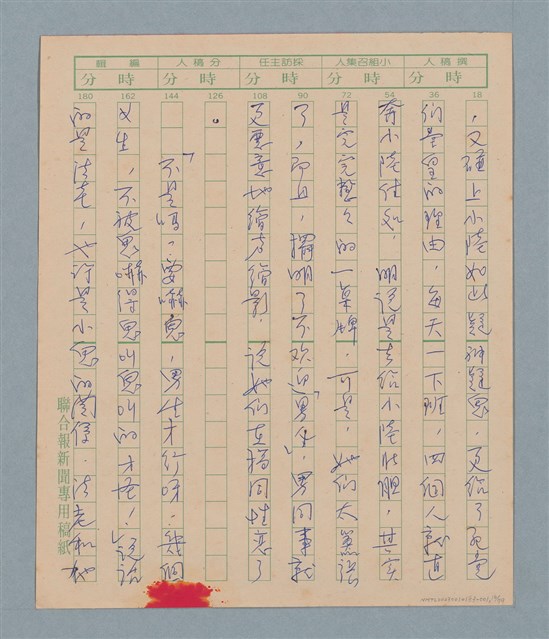 撰稿人 小組召集人 採訪主任 分稿人 編輯
時 分 時 分 時 分 時 分 時 分
18 36 54 72 90 108 126 144 162 180
，又碰上小陸如此疑神疑鬼，更給了
們 的理由，每天一下班，四個人就直
奔小陸住處，明說是去給小陸壯膽，其實
是完完整整的一桌牌，可是，她們太囂張
了，而且，擺明了不欢迎男生，男同事就
更惡意地繪声繪影，說她們在搞同性恋了
。
「不是嗎，要嚇鬼，男生才行呀！幾個
女生，不被鬼嚇得鬼叫鬼叫的才怪！」說話
的是法老，也許是小鬼的関係，法老和她
聯合報新聞專用稿紙